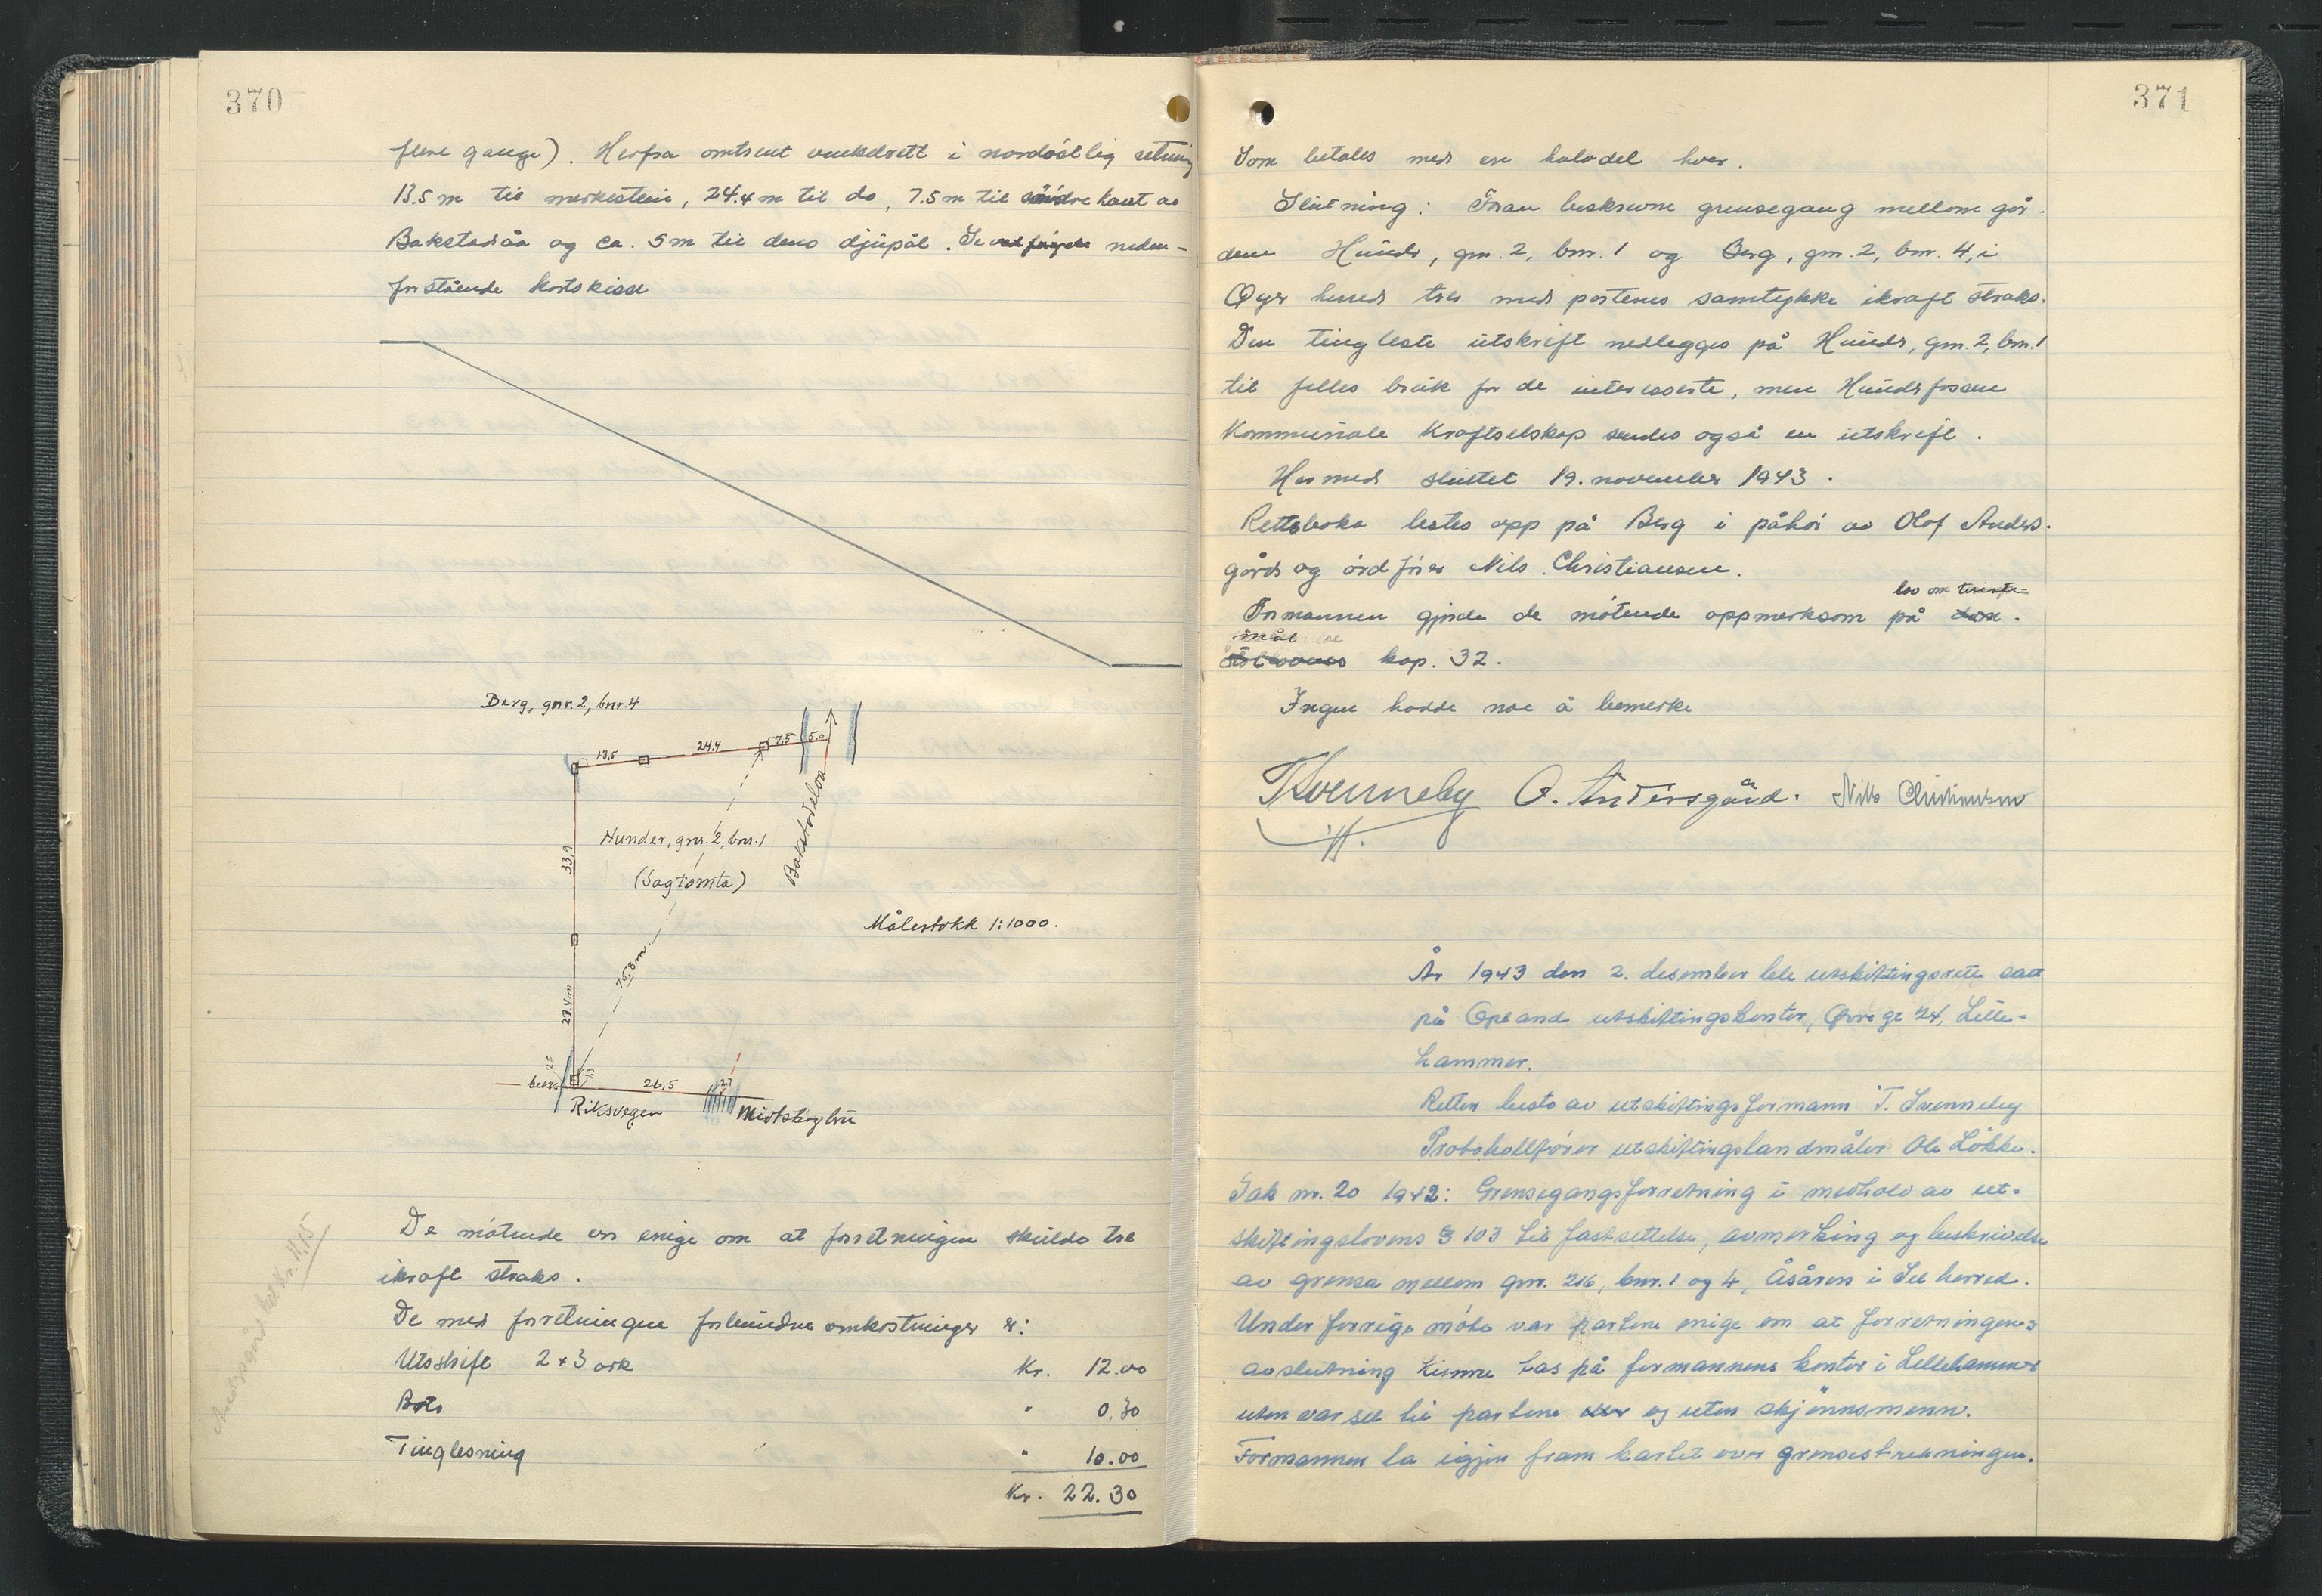 370
flere gange). Herfra omtrent vinkelrett i nordøstlig retning
13.5 m til merkestein, 24.4 m til do, 7.5 m til søndre kant av
Bakstadåa og ca. 5 m til dens djupål. Se neden-
forstående kartskisse
Berg, gnr. 2, bnr. 4
13,5 24.4 7,5 5.0
Hunder, gnr. 2, bnr. 1
(Sagtomta)
Bakstadelva
33,9
Målestokk 1:1000.
75,8 m
27.4 m
2.5
26,5 2.7
Riksvegen Midtskog bru
De møtende er enige om at forretningen skulde tre
ikraft straks.
De med forretningen forbundne omkostninger er:
Utskrift 2 + 3 ark Kr. 12.00
Porto " 0,30
Tinglesning " 10.00
Kr. 22.30
371
Som betales med en halvdel hver.
Slutning: Foran beskrevne grensegang mellom går-
dene Hunder, gnr. 2, bnr. 1 og Berg, gnr. 2, bnr. 4, i
Øyer herred trer med partenes samtykke ikraft straks.
Den tingleste utskrift nedlegges på Hunder, gnr. 2, bnr. 1
til felles bruk for de interesserte, men Hunderfossen
Kommunale Kraftselskap sendes også en utskrift.
Hermed sluttet 19. november 1943.
Rettsboka lestes opp på Berg i påhør av Olof Anders-
gård og ordfører Nils Christiansen.
lov om tviste-
Formannen gjorde de møtende oppmerksom på den.
mål
kap. 32.
Ingen hadde noe å bemerke
T Svenneby O. Andersgård. Nils Christiansen
År 1943 den 2. desember ble utskiftingsrett satt
på Opland utskiftingskontor, Gate 24, Lille-
hammer.
Retten besto av utskiftingsformann T. Svenneby
Protokollfører utskiftingslandmåler Ole Løkke.
Sak nr. 20 1942: Grensegangsforretning i medhold av ut-
skiftingslovens § 103 til fastsettelse, avmerking og beskrivelse
av grensa mellom gnr. 216, bnr. 1 og 4, Åsåren i Sel herred.
Under forrige møte var partene enige om at forretningens
avslutning kunne tas på formannens kontor i Lillehammer
uten varsel til partene og uten skjønnsmenn.
Formannen la igjen fram kartet over grensestrekningen.